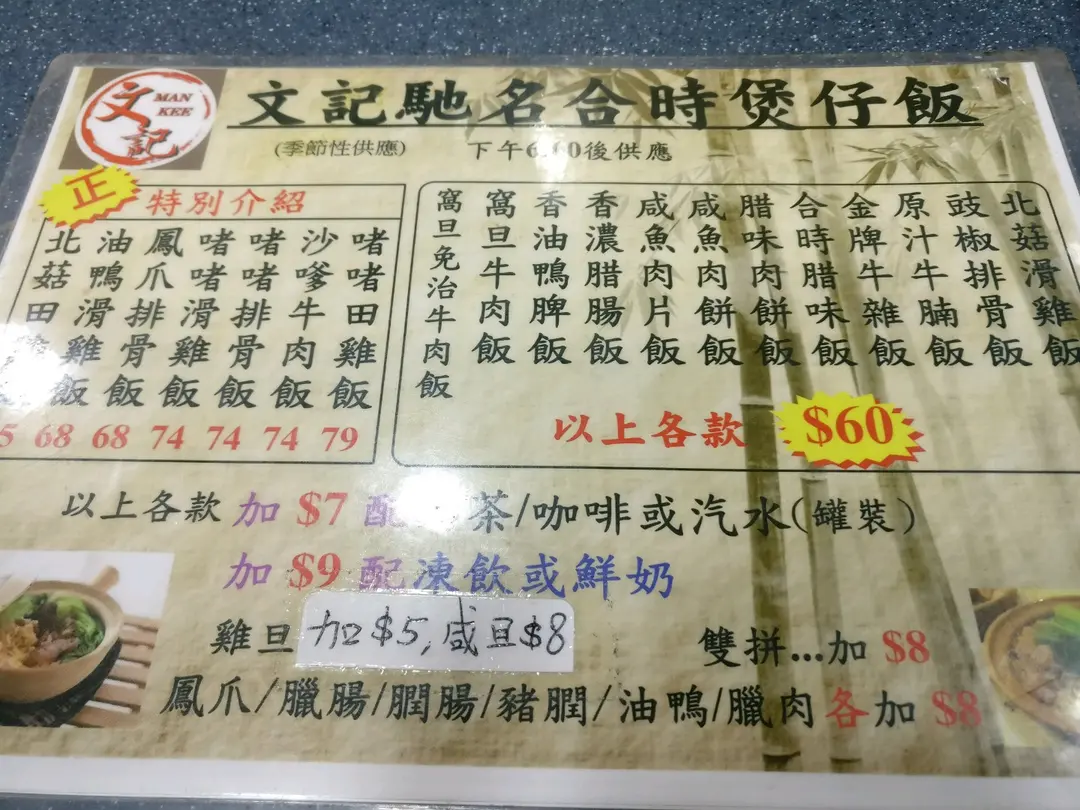 文記
MAN KEE
文記馳名合時煲仔飯
(季節性供應)
下午6:00後供應
正
特別介紹
啫啫田雞飯 79
沙嗲牛肉飯 74
啫啫排骨飯 74
啫啫滑雞飯 74
鳳爪排骨飯 68
油鴨滑雞飯 68
北菇田
北菇滑雞飯
豉椒排骨飯
原汁牛腩飯
金牌牛雜飯
合時腊味飯
腊味肉餅飯
咸魚肉餅飯
咸魚肉片飯
香濃腊腸飯
香油鴨脾飯
窩旦牛肉飯
窩旦免治牛肉飯
以上各款 $60
以上各款 加 $7 配 茶/咖啡或汽水(罐裝)
加 $9 配凍飲或鮮奶
雞旦 加$5,咸旦$8
雙拼...加 $8
鳳爪/臘腸/膶腸/豬膶/油鴨/臘肉各加 $8